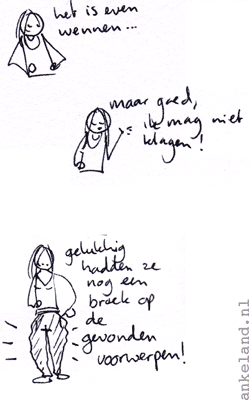 het is even
wennen...
maar goed,
ik mag niet
klagen!
gelukkig
hadden ze
nog een
broek op
de
gevonden
voorwerpen!
ankeland.nl